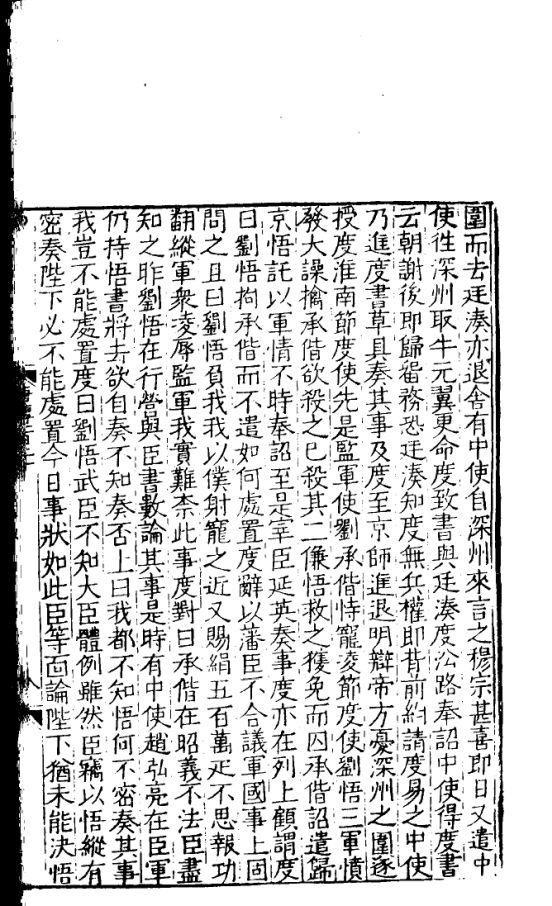 圍而去廷湊亦退舍有中使自深州來言之穆宗甚喜即日又遣中
使徃深州取牛元翼更命度致書與廷湊度㳂路奉詔中使得度書
云朝謝後即歸畱務恐廷湊知度無兵權即背前約請度易之中使
乃進度書草具奏其事及度至京師進退明辯帝方憂深州之圍遂
授度淮南節度使先是監軍使劉承偕恃寵凌節度使劉悟三軍憤
發大譟擒承偕欲殺之已殺其二傔悟救之獲免而囚承偕詔遣歸
京悟託以軍情不時奉詔至是宰臣延英奏事度亦在列上顧謂度
曰劉悟拘承偕而不遣如何處置度辭以藩臣不合議軍國事上固
問之且曰劉悟負我我以僕射寵之近又賜絹五百萬疋不思報功
翻縱軍衆凌辱監軍我實難柰此事度對曰承偕在昭義不法臣盡
知之昨劉悟在行營與臣書數論其事是時有中使趙弘亮在臣軍
仍持悟書將去欲自奏不知奏否上曰我都不知悟何不密奏其事
我豈不能處置度曰劉悟武臣不知大臣體例雖然臣竊以悟縱有
密奏陛下必不能處置今日事狀如此臣等面論陛下猶未能決悟